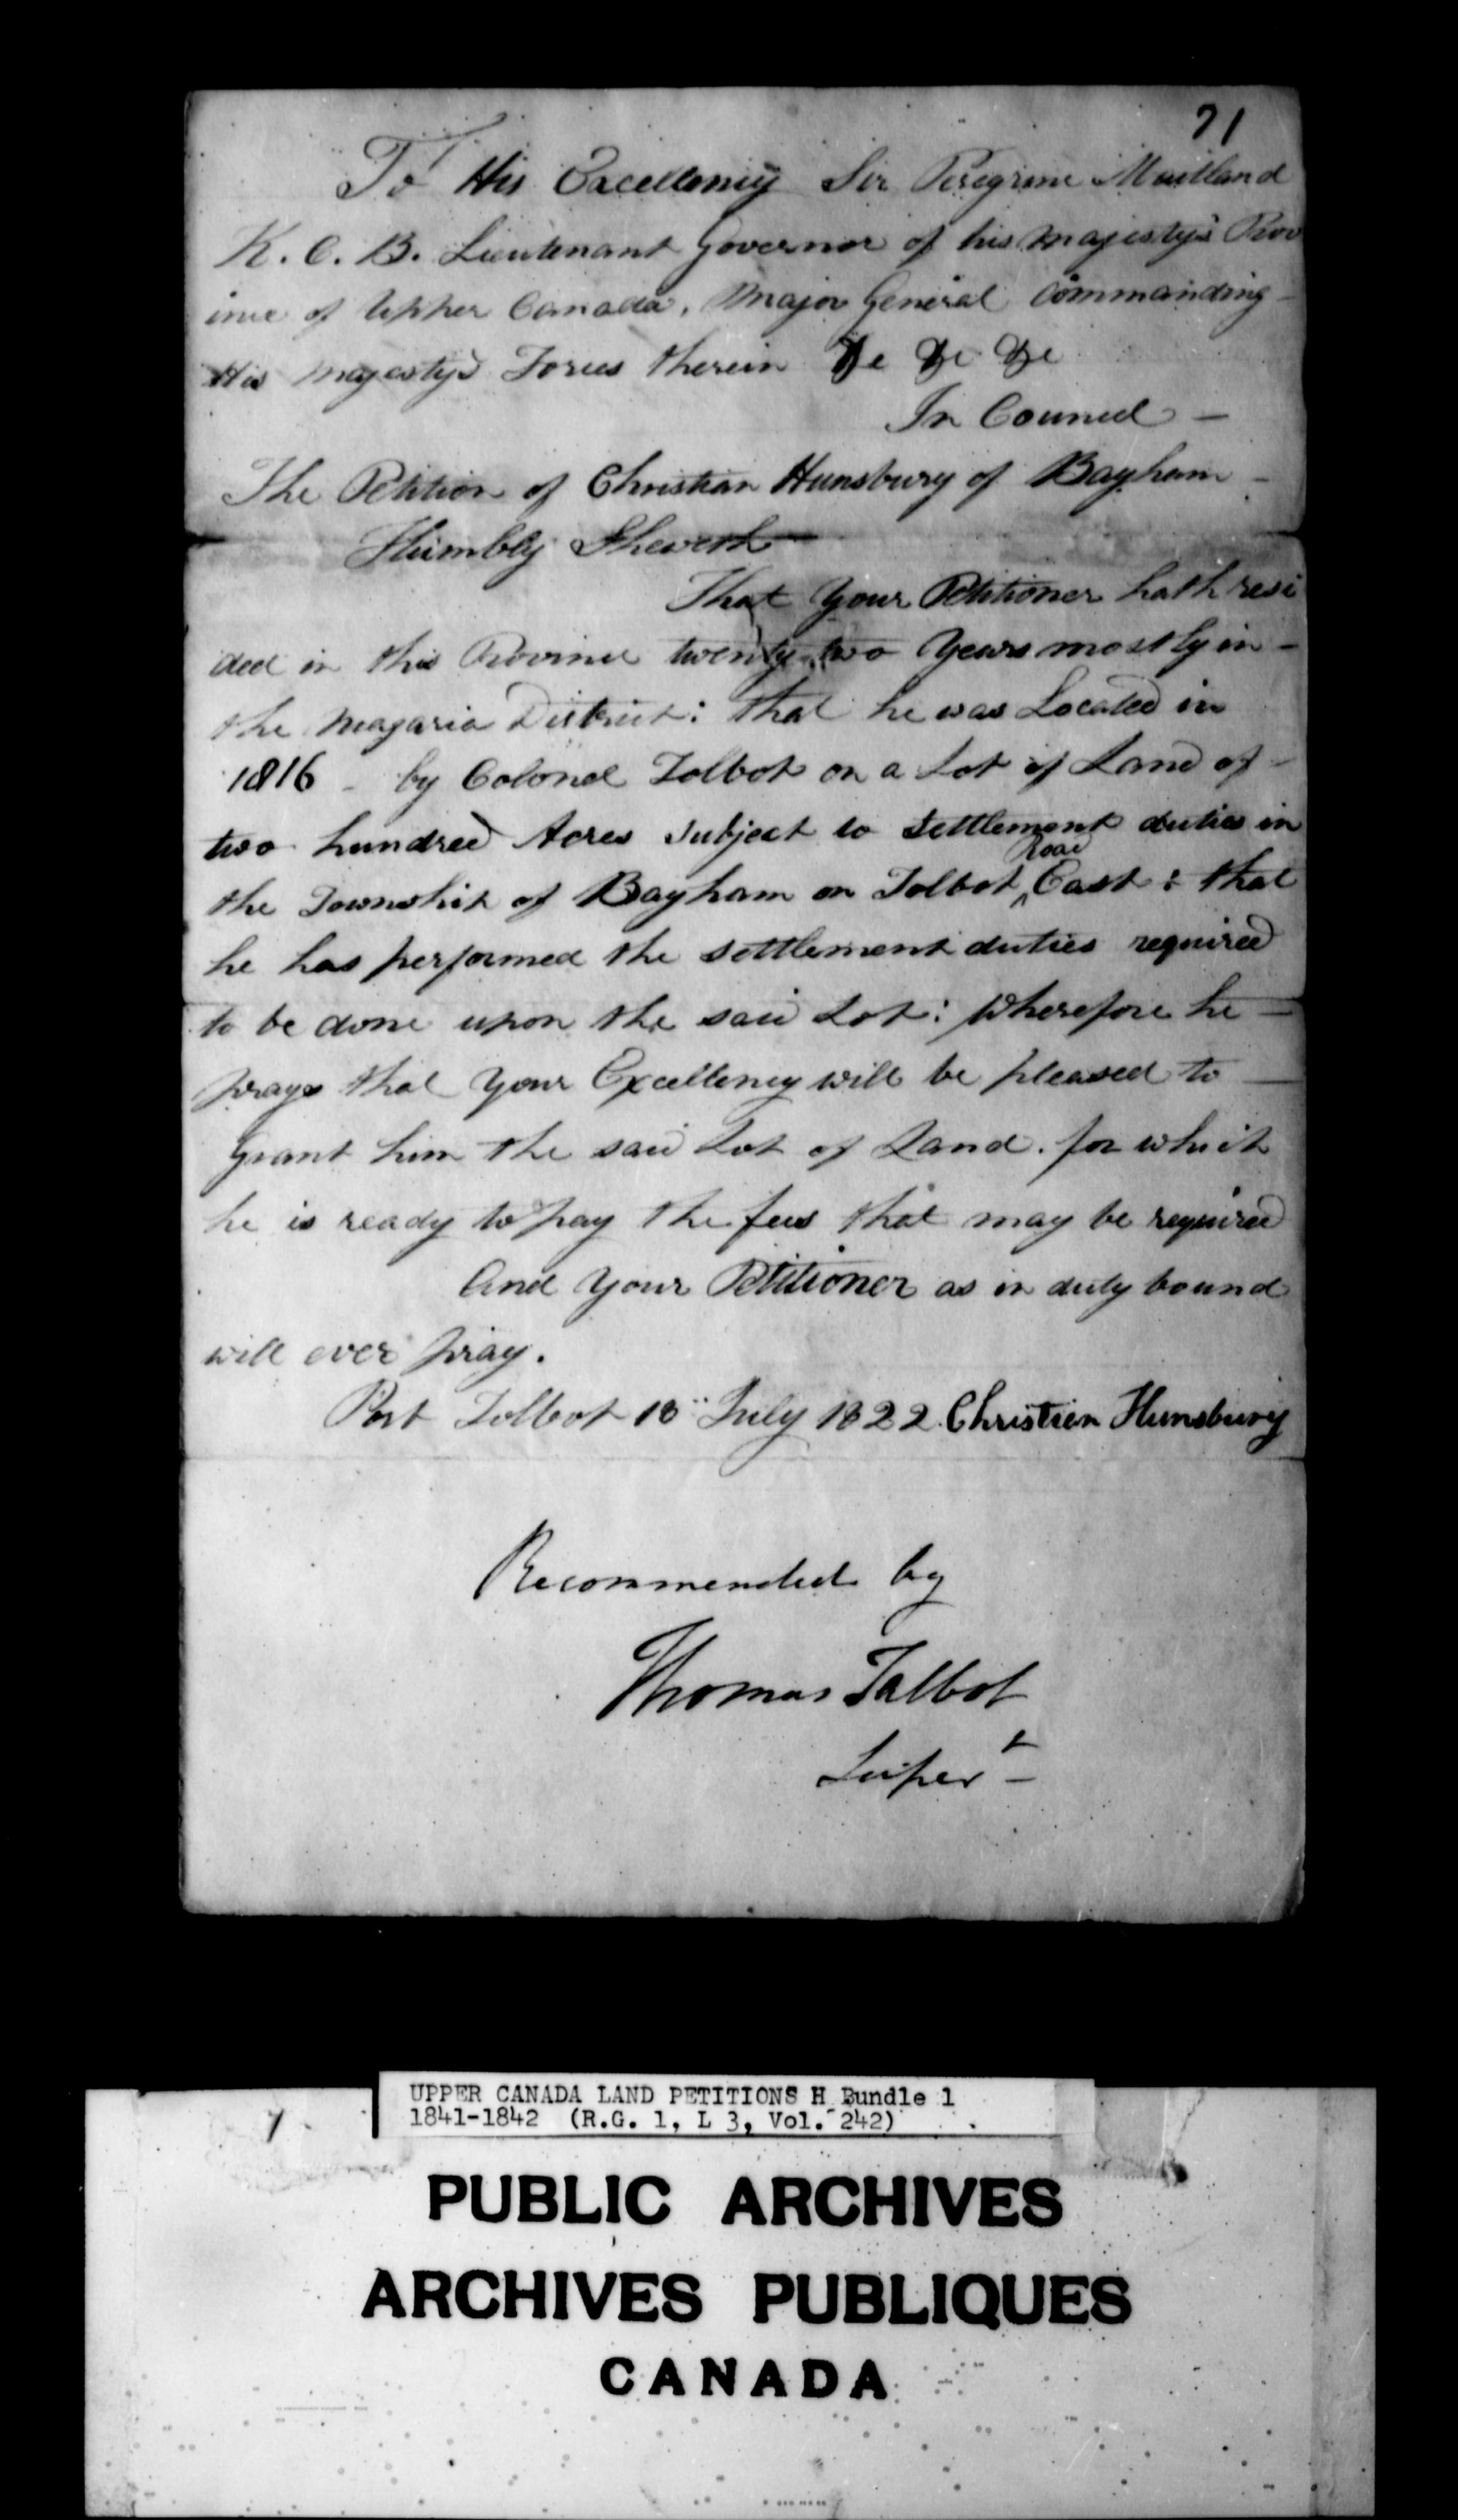 71
To His Excellency Sir Peregrine Maitland
K. C. B. Lieutenant Governor of his Majesty's Prov
ince of Upper Canada, Major General Commanding
His Majesty's Forces therein &c &c &c
In Council —
The Petition of Christian Hunsbury of Bayham
Humbly Sheweth
That Your Petitioner hath resi
ded in this Province twenty-two Years mostly in -
the Niagaria District: that he was Located in
1816 - by Colonel Talbot on a Lot of Land of -
two hundred Acres subject to settlement duties in
Road
the Township of Bayham on Talbot ^ East : that
he has performed the settlement duties required
to be done upon the said Lot: Wherefore he —
prays that Your Excellency will be pleased to —
Grant him the said Lot of Land. for which
he is ready to pay the fees that may be required
And Your Petitioner as in duty bound
will ever pray.
Port Talbot 18 July 1822. Christien Hunsbury
Recommended by
Thomas Talbot
Supert
UPPER CANADA LAND PETITIONS H Bundle 1
1841-1842 (R.G. 1, L 3, Vol. 242)
PUBLIC ARCHIVES
ARCHIVES PUBLIQUES
CANADA